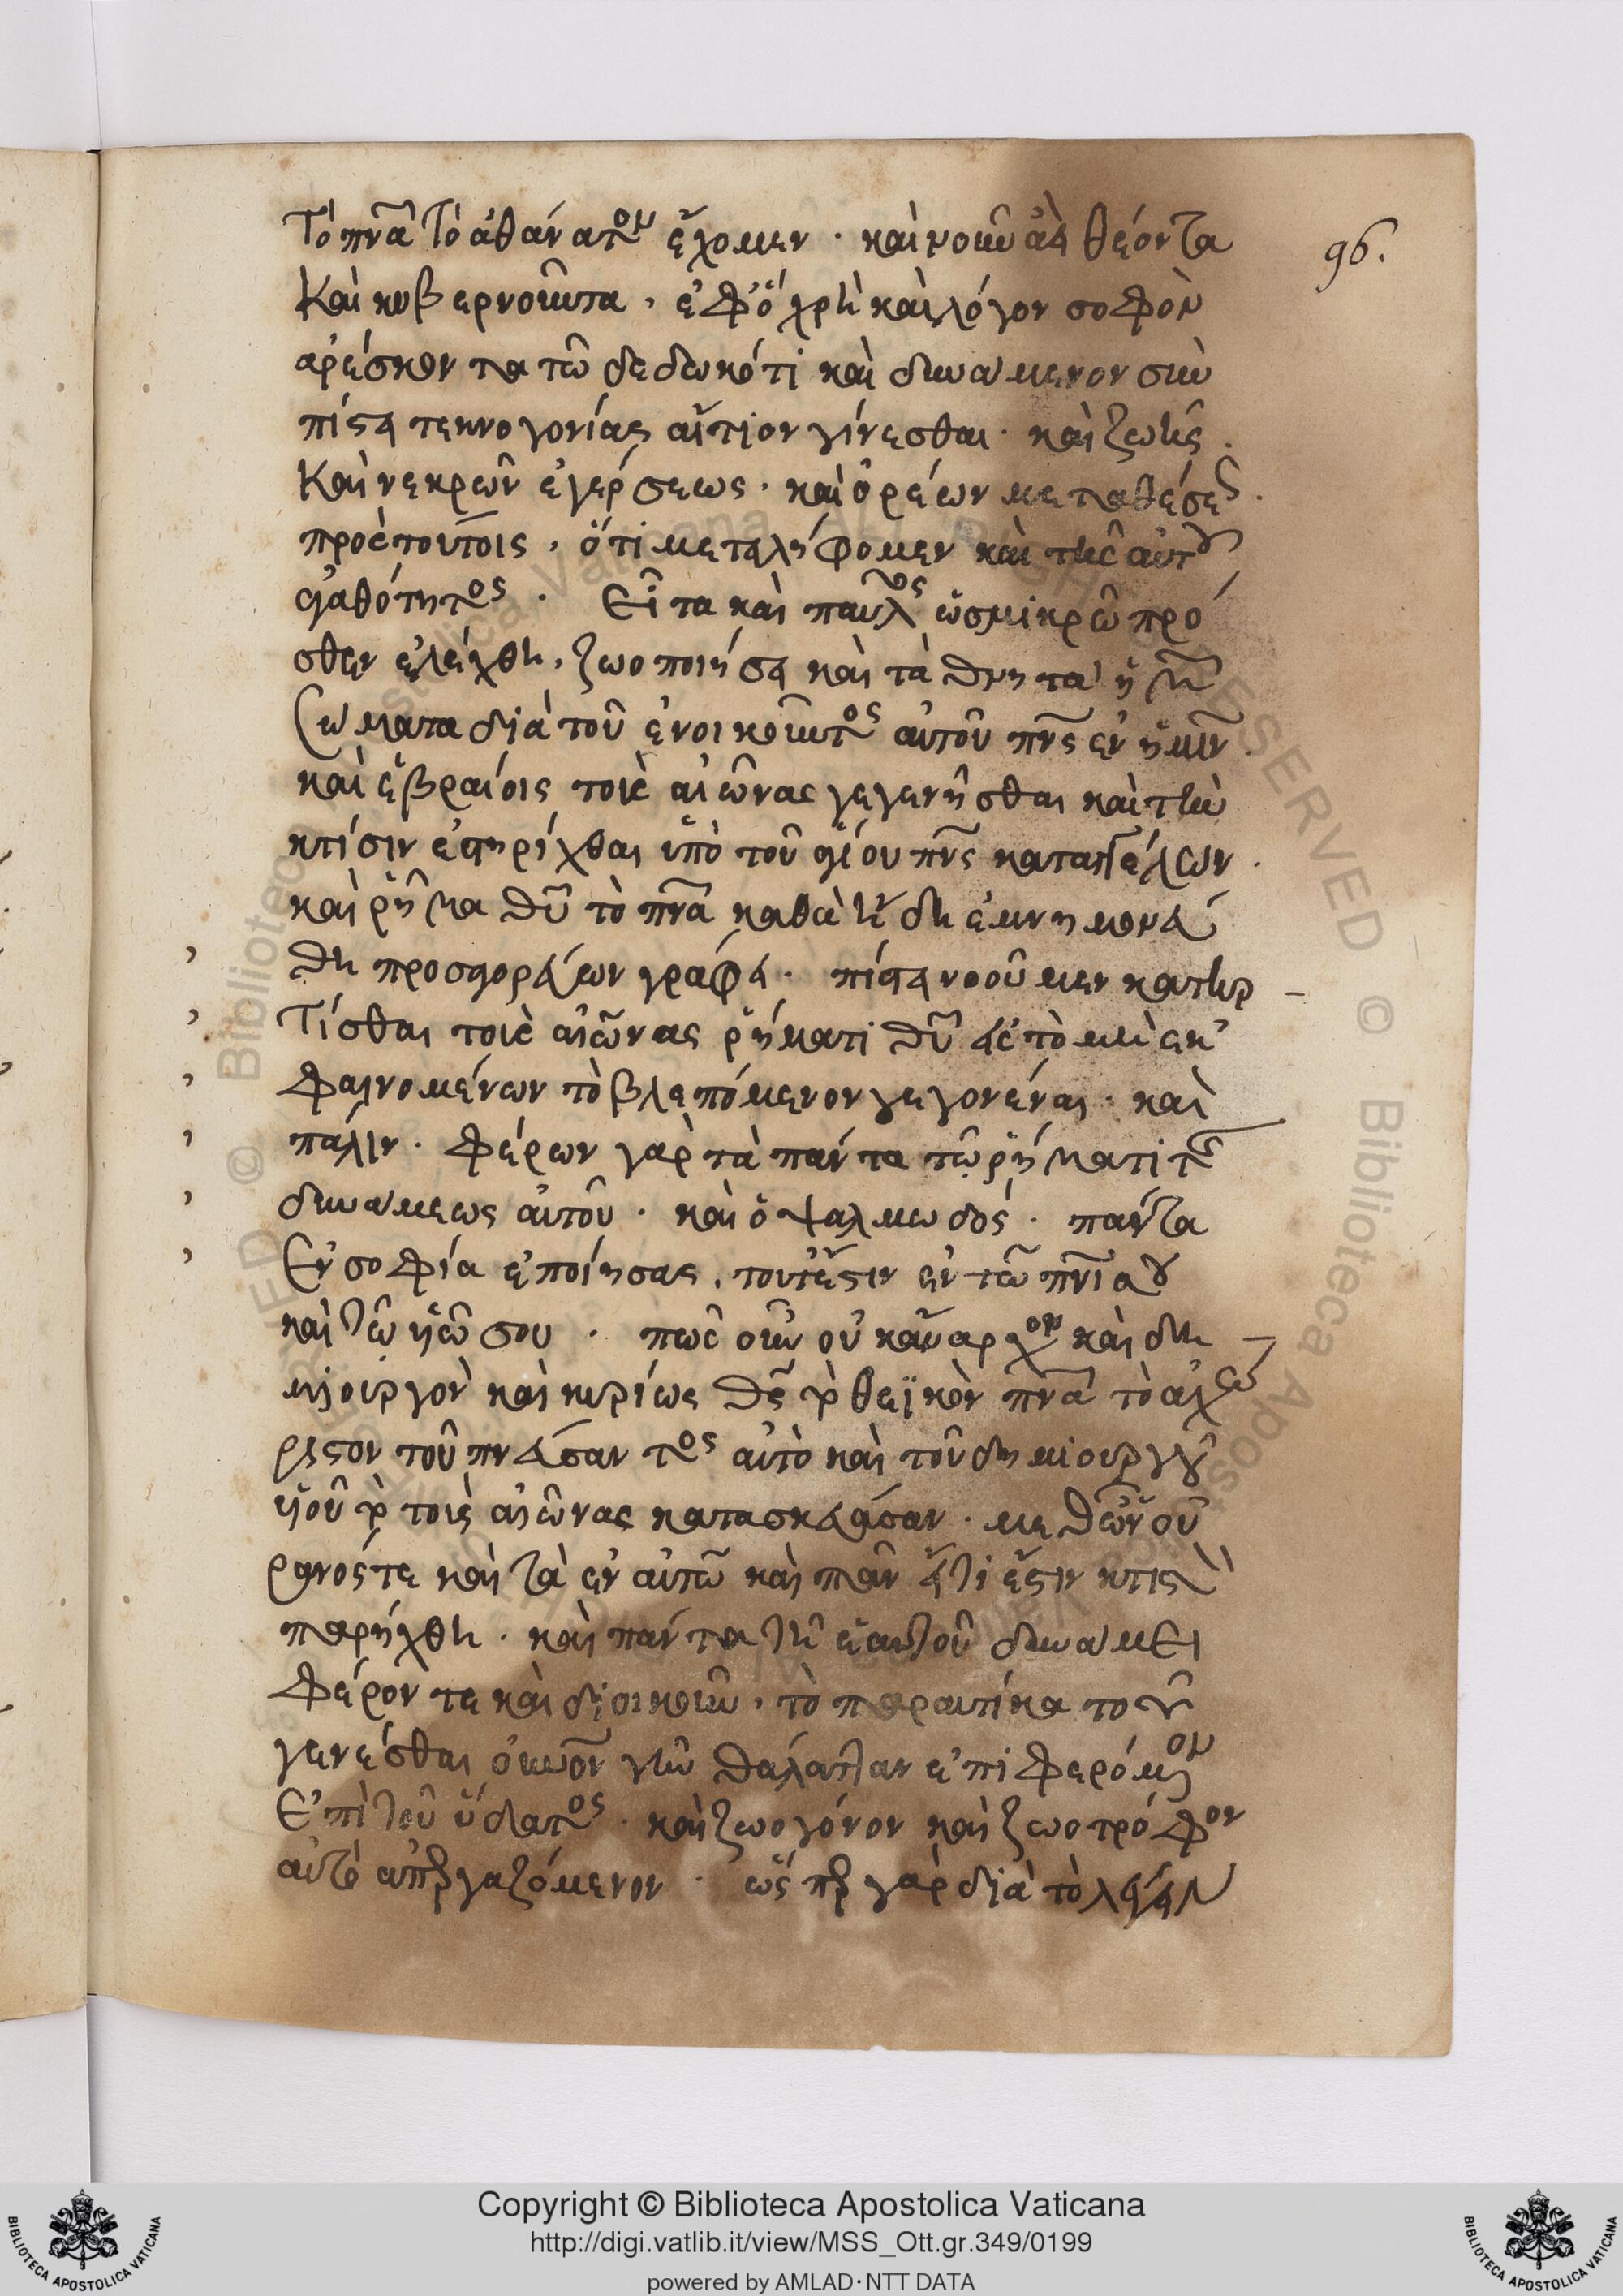 Τὸ πν̅α τὸ ἀθάνατον ἔχομεν · καὶ νοῦν ἀεὶ θέοντα
96.
καὶ κυβερνοῦντα, ἐφ' ὃ χρὴ καὶ λόγον σοφὸν
αρέσκοντα τῶ δεδωκότι καὶ δυνάμενον σὺν
πίστει τεκνογονίας αἴτιον γίνεσθαι · καὶ ζωῆς ·
καὶ νεκρῶν ἐγέρσεως · καὶ ὀρέων μεταθέσεως ·
πρὸς τούτοις, ὅτι μεταληψόμεν καὶ τῆς αὐτοῦ
ἀγαθότητος · Εἶτα καὶ παῦλος ὡς μικρῶ πρό
σθεν ἐλέχθη, ζωοποιήσει καὶ τὰ θνητὰ ἡμῶν
σώματα διὰ τοῦ ἐνοικοῦντος αὐτοῦ πν̅ς ἐν ἡμῖν ·
καὶ ἑβραίοις τοὺς αἰῶνας γεγενῆσθαι καὶ τὴν
κτίσιν ἐστηρίχθαι ὑπὸ τοῦ ἁγίου πν̅ς καταγγέλλων ·
καὶ ῥῆμα θυ̅ τὸ πν̅α καθὰ ἤδη ἐμνημονεύ
θη προσαγορεύων γράφει · πίστει νοοῦμεν κατηρ
τίσθαι τοὺς αἰῶνας ῥήματι θυ̅ εἰς τὸ μὴ ἐκ
φαινομένων τὸ βλεπόμενον γεγονέναι · καὶ
πάλιν · φέρων γὰρ τὰ πάντα τῶ ῥήματι τῆς
δυνάμεως αὐτοῦ · καὶ ὁ ψαλμωδός · πάντα
ἐν σοφία ἐποίησας, τουτέστιν ἐν τῶ πν̅ι σου
καὶ τῶ υἱῶ σου · πῶς οὖν οὐκ ἄναρχον καὶ δη
μιουργὸν καὶ κυρίως θς̅ τὸ θεϊκὸν πν̅α τὸ ἀχώ
ριστον τοῦ πνεύσαντος αὐτὸ καὶ τοῦ δημιουργοῦ
υἱοῦ τὸ τοὺς αἰῶνας κατασκευάσαν · μεθ' ὧν οὐ
ρανός τε καὶ τὰ ἐν αὐτῶ καὶ πᾶν εἴ τι ἔστιν κτιστὸν
παρήχθη · καὶ πάντα τῆ ἑαυτοῦ δυνάμει
φέρον τε καὶ διοικοῦν, τὸ παραυτίκα τοῦ
γενέσθαι οὐνον γῆν θάλατταν ἐπιφερόμενον
ἐπὶ τοῦ ὕδατος · καὶ ζωογόνον καὶ ζωοτρόφον
αὐτὸ ἀπεργαζόμενον · ὥσπερ γὰρ διὰ τὸ λέγειν
Copyright © Biblioteca Apostolica Vaticana
http://digi.vatlib.it/view/MSS_Ott.gr.349/0199
powered by AMLAD·NTT DATA
BIBLIOTECA APOSTOLICA VATICANA
BIBLIOTECA APOSTOLICA VATICANA